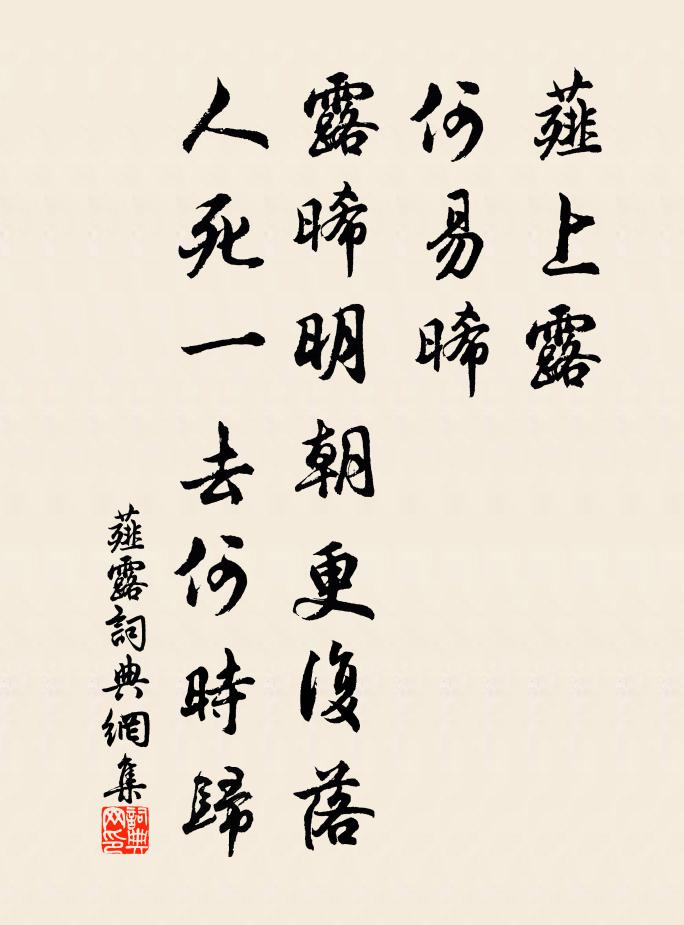 薤上露
何易晞
露晞明朝更復落
人死一去何時歸
薤露詞典網集
詞典网印